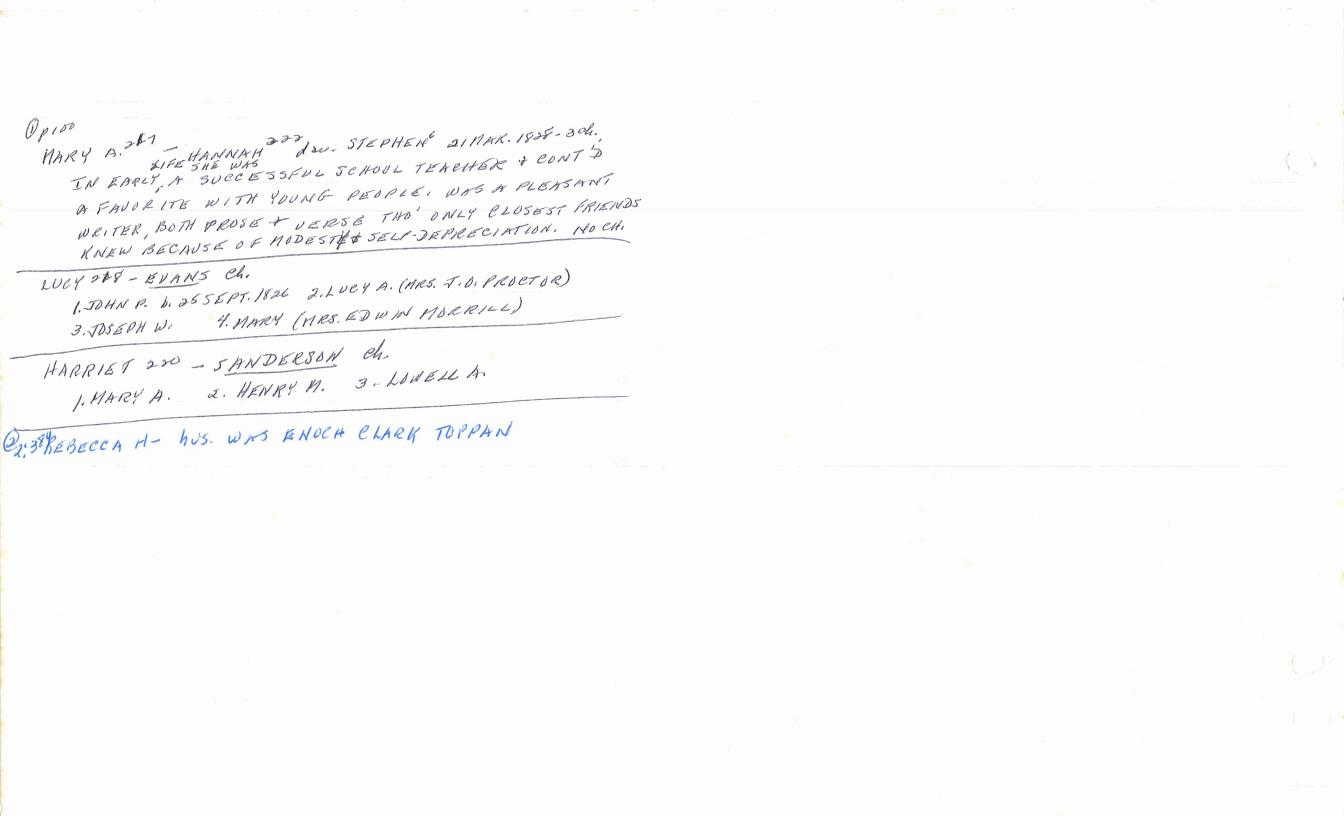 ① p100
MARY A. 217 – HANNAH 222 dau. STEPHEN⁶ 21 MAR. 1828 - 3 ch.
LIFE SHE WAS
IN EARLY, A SUCCESSFUL SCHOOL TEACHER & CONT'D
A FAVORITE WITH YOUNG PEOPLE. WAS A PLEASANT
WRITER, BOTH PROSE & VERSE THO' ONLY CLOSEST FRIENDS
KNEW BECAUSE OF MODESTY & SELF-DEPRECIATION. NO CH.
LUCY 218 – EVANS Ch.
1. JOHN P. b. 25 SEPT. 1826 2. LUCY A. (MRS. J.O. PROCTOR)
3. JOSEPH W. 4. MARY (MRS. EDWIN MORRILL)
HARRIET 220 – SANDERSON Ch.
1. MARY A. 2. HENRY M. 3. LOWELL A.
② REBECCA H – hus. WAS ENOCH CLARK TOPPAN